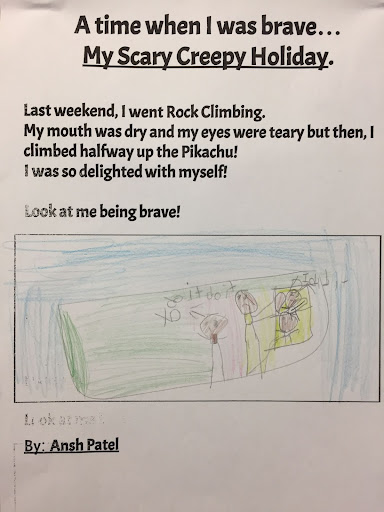 A time when I was brave...
My Scary Creepy Holiday.
Last weekend, I went Rock Climbing.
My mouth was dry and my eyes were teary but then, I
climbed halfway up the Pikachu!
I was so delighted with myself!
Look at me being brave!
do it
Look at me!
By: Ansh Patel